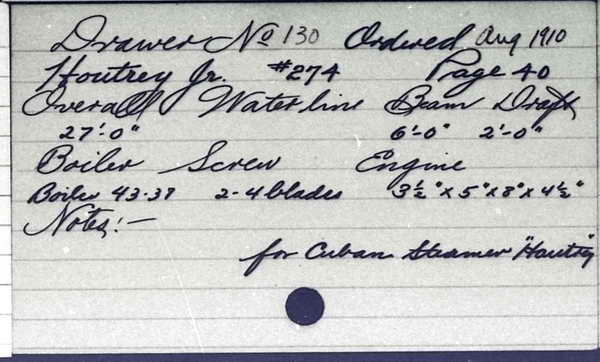 Drawer No 130 Ordered Aug 1910
Houtrey Jr. #274 Page 40
Overall Water line Beam Draft
27'-0" 6'-0" 2'-0"
Boiler Screw Engine
Boiler 43-37 2-4 blades 3½" x 5" x 8" x 4½"
Notes:-
for Cuban Steamer "Hautrey"